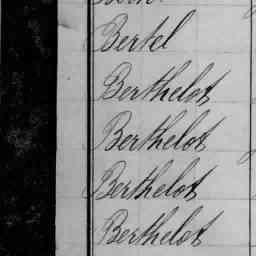 Bertel
Berthelot
Berthelot
Berthelot
Berthelot